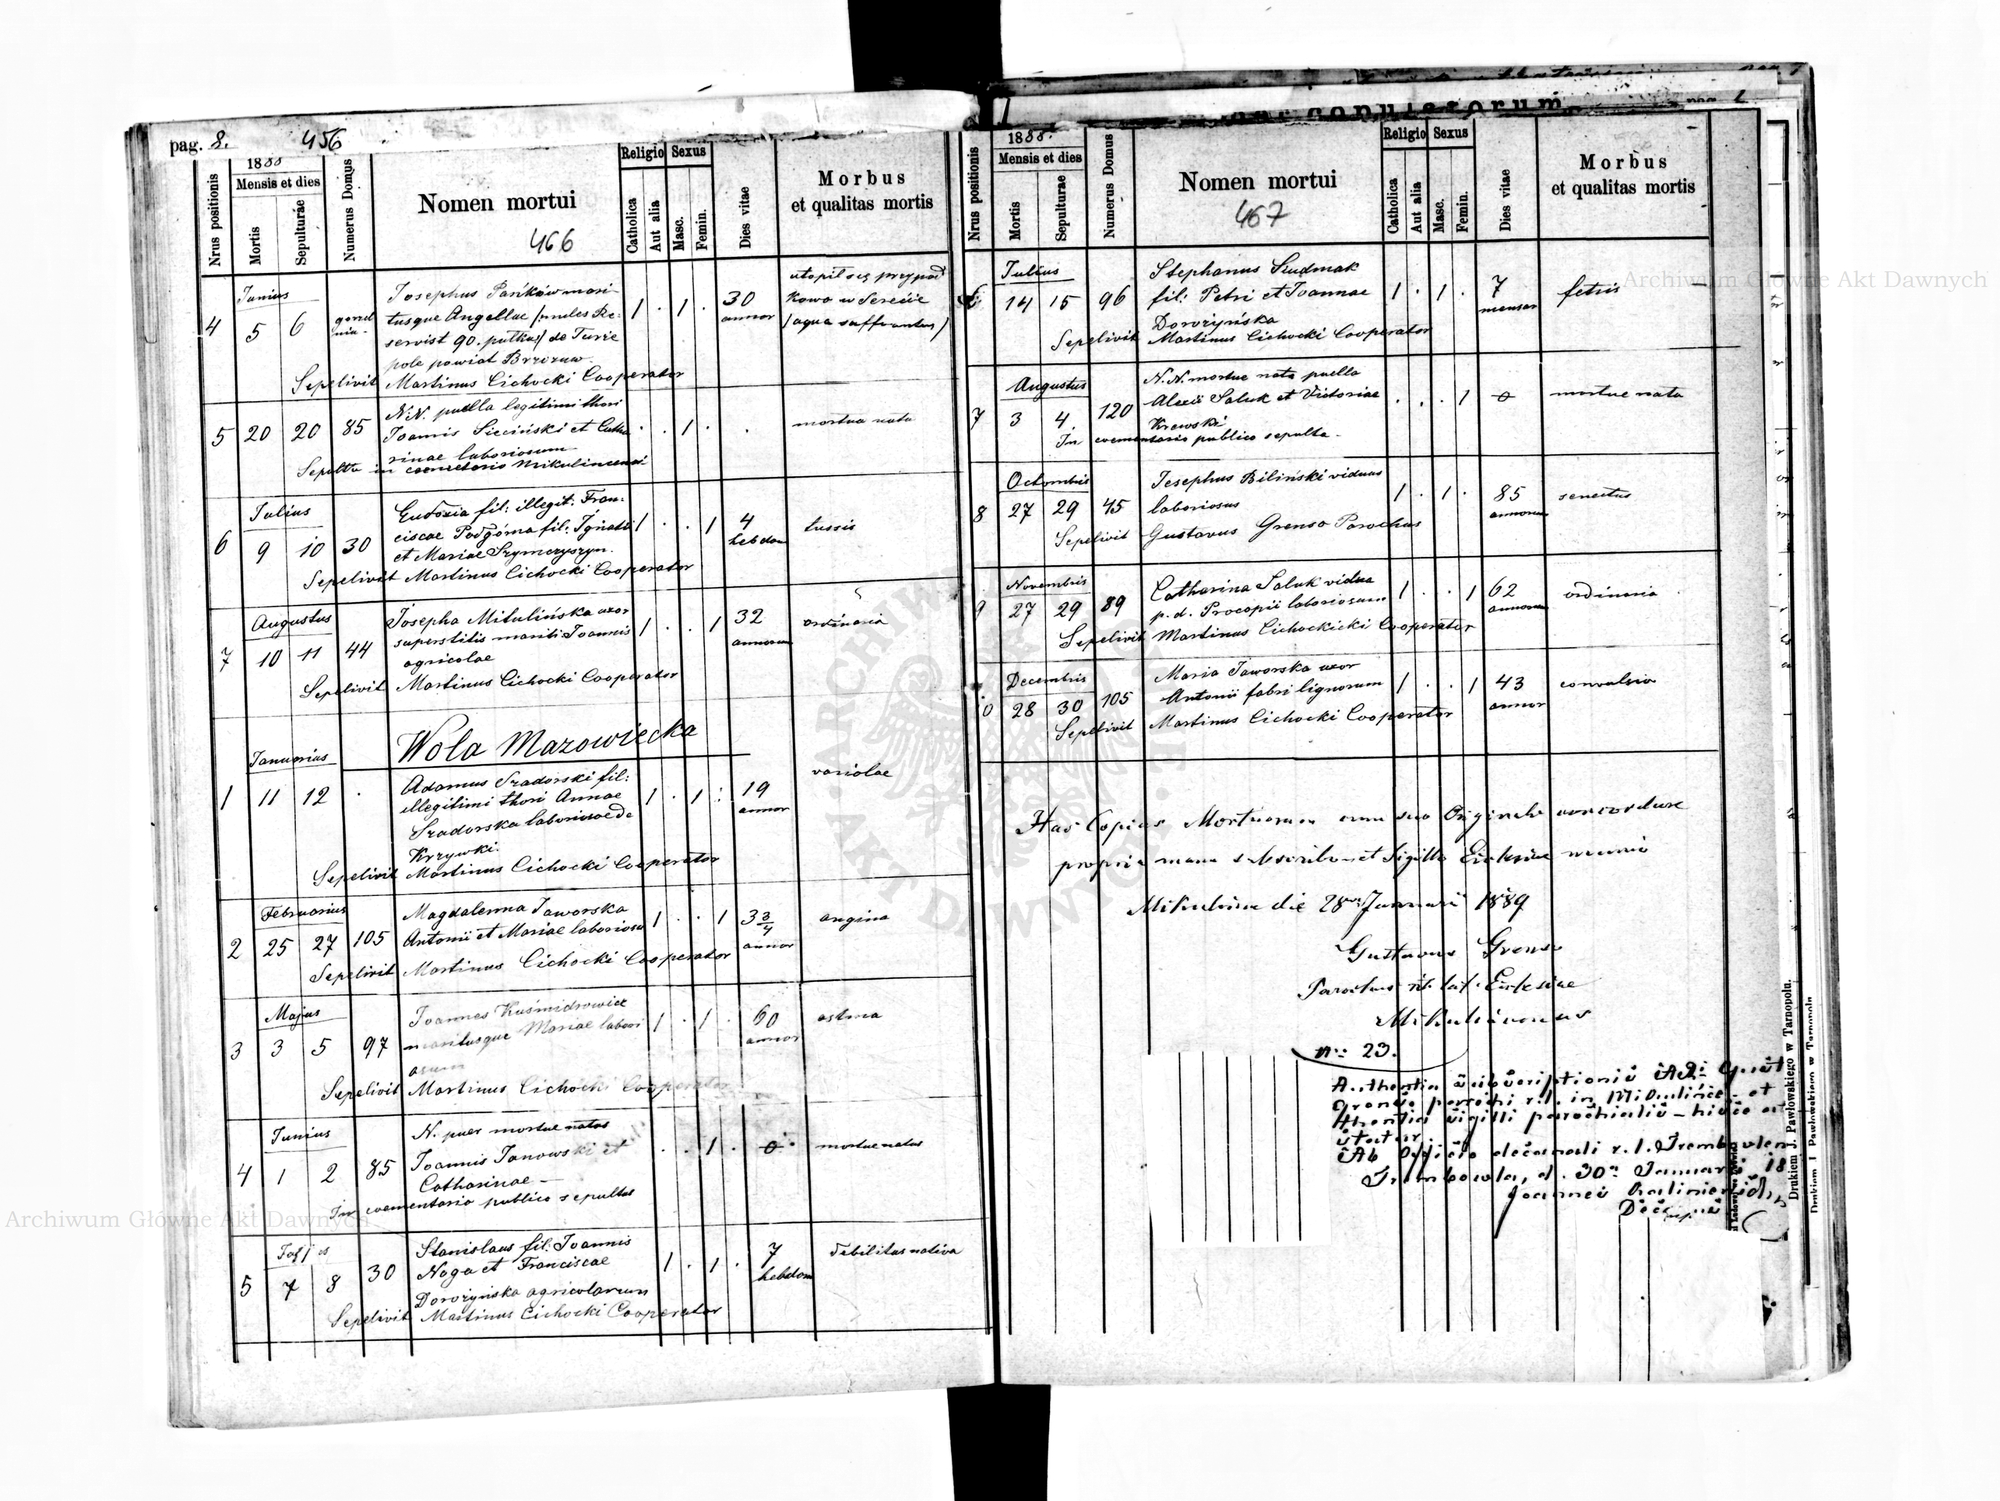 pag. 8. 456
1888
Nrus positionis
Mensis et dies
Mortis
Sepulturae
Numerus Domus
Nomen mortui
466
Religio
Catholica
Aut alia
Sexus
Masc.
Femin.
Dies vitae
Morbus
et qualitas mortis
Junius
4 5 6
Josephus Pańków mari-
tusque Angellae (miles Re-
servist 90. pułku) de Turie
pole powiat Brzozów
1 . 1 . 30
annor
utopił się przypad
kowo w Serecie
(aqua suffocatus)
Sepelivit Martinus Cichocki Cooperator
5 20 20 85
N.N. puella legitimi thori
Joannis Sieciński et Catha
rinae laboriosum
. . 1 . .
mortua nata
Sepulta in coemetorio Mikulincensi
Julius
6 9 10 30
Eudoxia fil: illegit: Fran-
ciscae Podgórna fil: Ignatii
et Mariae Szymczyszyn.
1 . . 1 4
hebdom
tussis
Sepelivit Martinus Cichocki Cooperator
Augustus
7 10 11 44
Josepha Mikulińska uxor
superstitis mariti Joannis
agricolae
1 . . 1 32
annorum
ordinaria
Sepelivit Martinus Cichocki Cooperator
Wola Mazowiecka
Januarius
1 11 12 .
Adamus Szadorski fil:
illegitimi thori Annae
Szadorska laboriosae de
Krzywki.
1 . 1 : 19
annor
variolae
Sepelivit Martinus Cichocki Cooperator
Februarius
2 25 27 105
Magdalenna Jaworska
Antonii et Mariae laborioso
1 . . 1 3 3/4
annor
angina
Sepelivit Martinus Cichocki Cooperator
Majus
3 3 5 97
Joannes Kuśmidrowicz
maritusque Mariae labori
osum
1 . 1 . 60
annor
astma
Sepelivit Martinus Cichocki Cooperator
Junius
4 1 2 85
N. puer mortue natus
Joannis Janowski et
Catharinae —
. . 1 . 0
mortue natus
In coementorio publico sepultus
5 7 8 30
Stanislaus fil: Joannis
Noga et Franciscae
Dorożyńska agricolarum
1 . 1 . 7
hebdom
debilitas nativa
Sepelivit Martinus Cichocki Cooperator
1888.
Nrus positionis
Mensis et dies
Mortis
Sepulturae
Numerus Domus
Nomen mortui
467
Religio
Catholica
Aut alia
Sexus
Masc.
Femin.
Dies vitae
Morbus
et qualitas mortis
Julius
14 15 96
Stephanus Szudmak
fil: Petri et Joannae
Dorożyńska
1 . 1 . 7
mensar
febris
Sepelivit Martinus Cichocki Cooperator
Augustus
7 3 4. 120
N.N. mortue nata puella
Alexii Saluk et Victoriae
Krewski
. . . 1 0
mortue nata
In coementorio publico sepulta.
Octombris
8 27 29 45
Josephus Biliński viduus
laboriosus
1 . 1 . 85
annorum
senectus
Sepelivit Gustavus Grenso Parochus
Novembris
9 27 29 89
Catharina Saluk vidua
p. d. Procopii laboriosum
1 . . 1 62
annorum
ordinaria
Sepelivit Martinus Cichockicki Cooperator
Decembris
0 28 30 105
Maria Jaworska uxor
Antonii fabri lignorum
1 . . 1 43
annor
convulsio
Sepelivit Martinus Cichocki Cooperator
Has Copias Mortuorum cum suo Originale concordare
propria manu subscribo et sigillo Ecclesiae munio
Mikulince die 28va Januarii 1889
Gustavus Grenso
Parochus rit. lat. Ecclesiae
Mikulincensis
n: 23.
Ab Officio decanali r. l. Trembowlen
Trembowla, d. 30a Januarii 18
Drukiem J. Pawłowskiego w Tarnopolu.
Drukiem J. Pawłowskiego w Tarnopolu
Archiwum Główne Akt Dawnych
Archiwum Główne Akt Dawnych
ARCHIWUM
AKT DAWNYCH